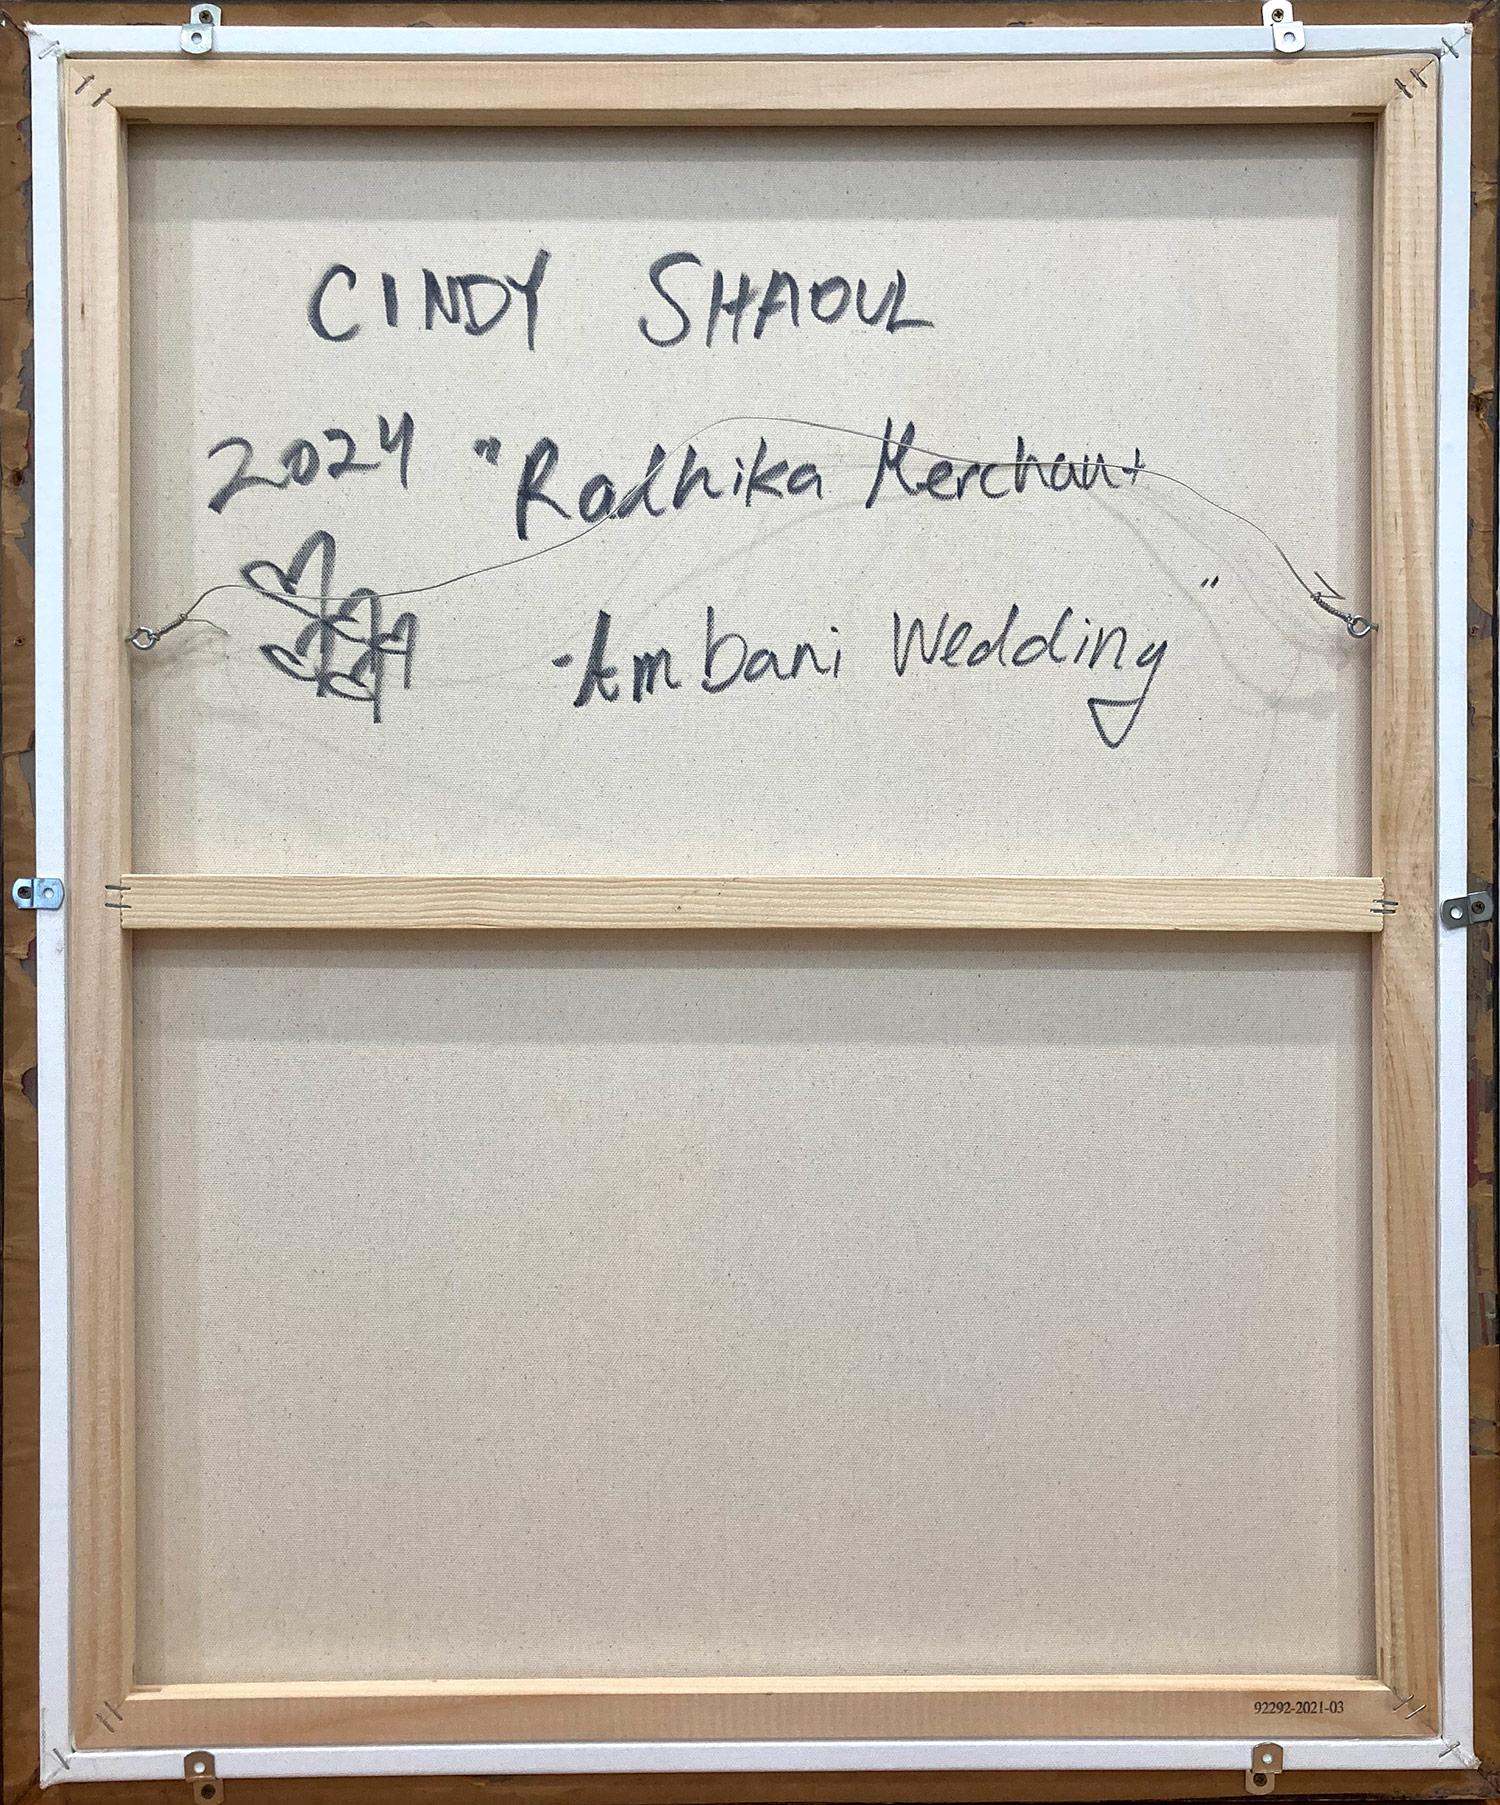 CINDY SHAOUL
2024 "Radhika Merchant
-Ambani Wedding"
92292-2021-03